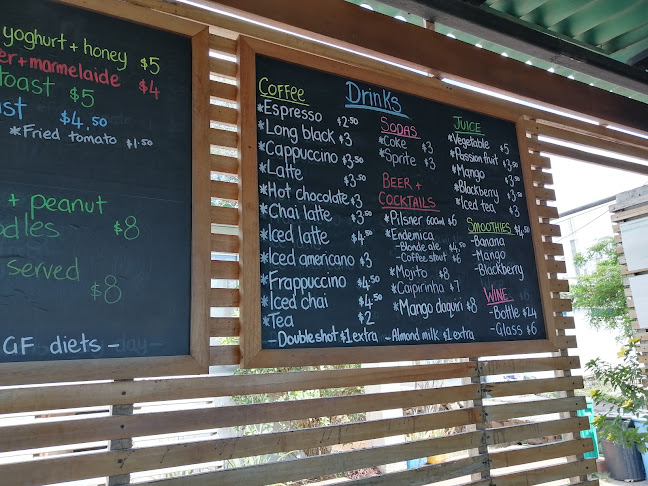 yoghurt + honey $5
er + marmelaide $4
toast $5
ast $4.50
*Fried tomato $1.50
+ peanut
odles $8
served $8
GF diets -
Drinks
Coffee
*Espresso $2.50
*Long black $3
*Cappuccino $3.50
*Latte $3.50
*Hot chocolate $3
*Chai latte $3.50
*Iced latte $4.50
*Iced americano $3
*Frappuccino $4.50
*Iced chai $4.50
*Tea $2
-Double shot $1 extra
-Almond milk $1 extra
SODAS
*Coke $3
*Sprite $3
BEER +
COCKTAILS
*Pilsner 600ml $6
*Endemica
-Blonde ale $4.50
-Coffee stout $6
*Mojito $8
*Caipirinha $7
*Mango daquri $8
JUICE
*Vegetable $5
*Passion fruit $3.50
*Mango $3.50
*Blackberry $3.50
*Iced tea $3
SMOOTHIES $4.50
-Banana
-Mango
-Blackberry
WINE
-Bottle $24
-Glass $6